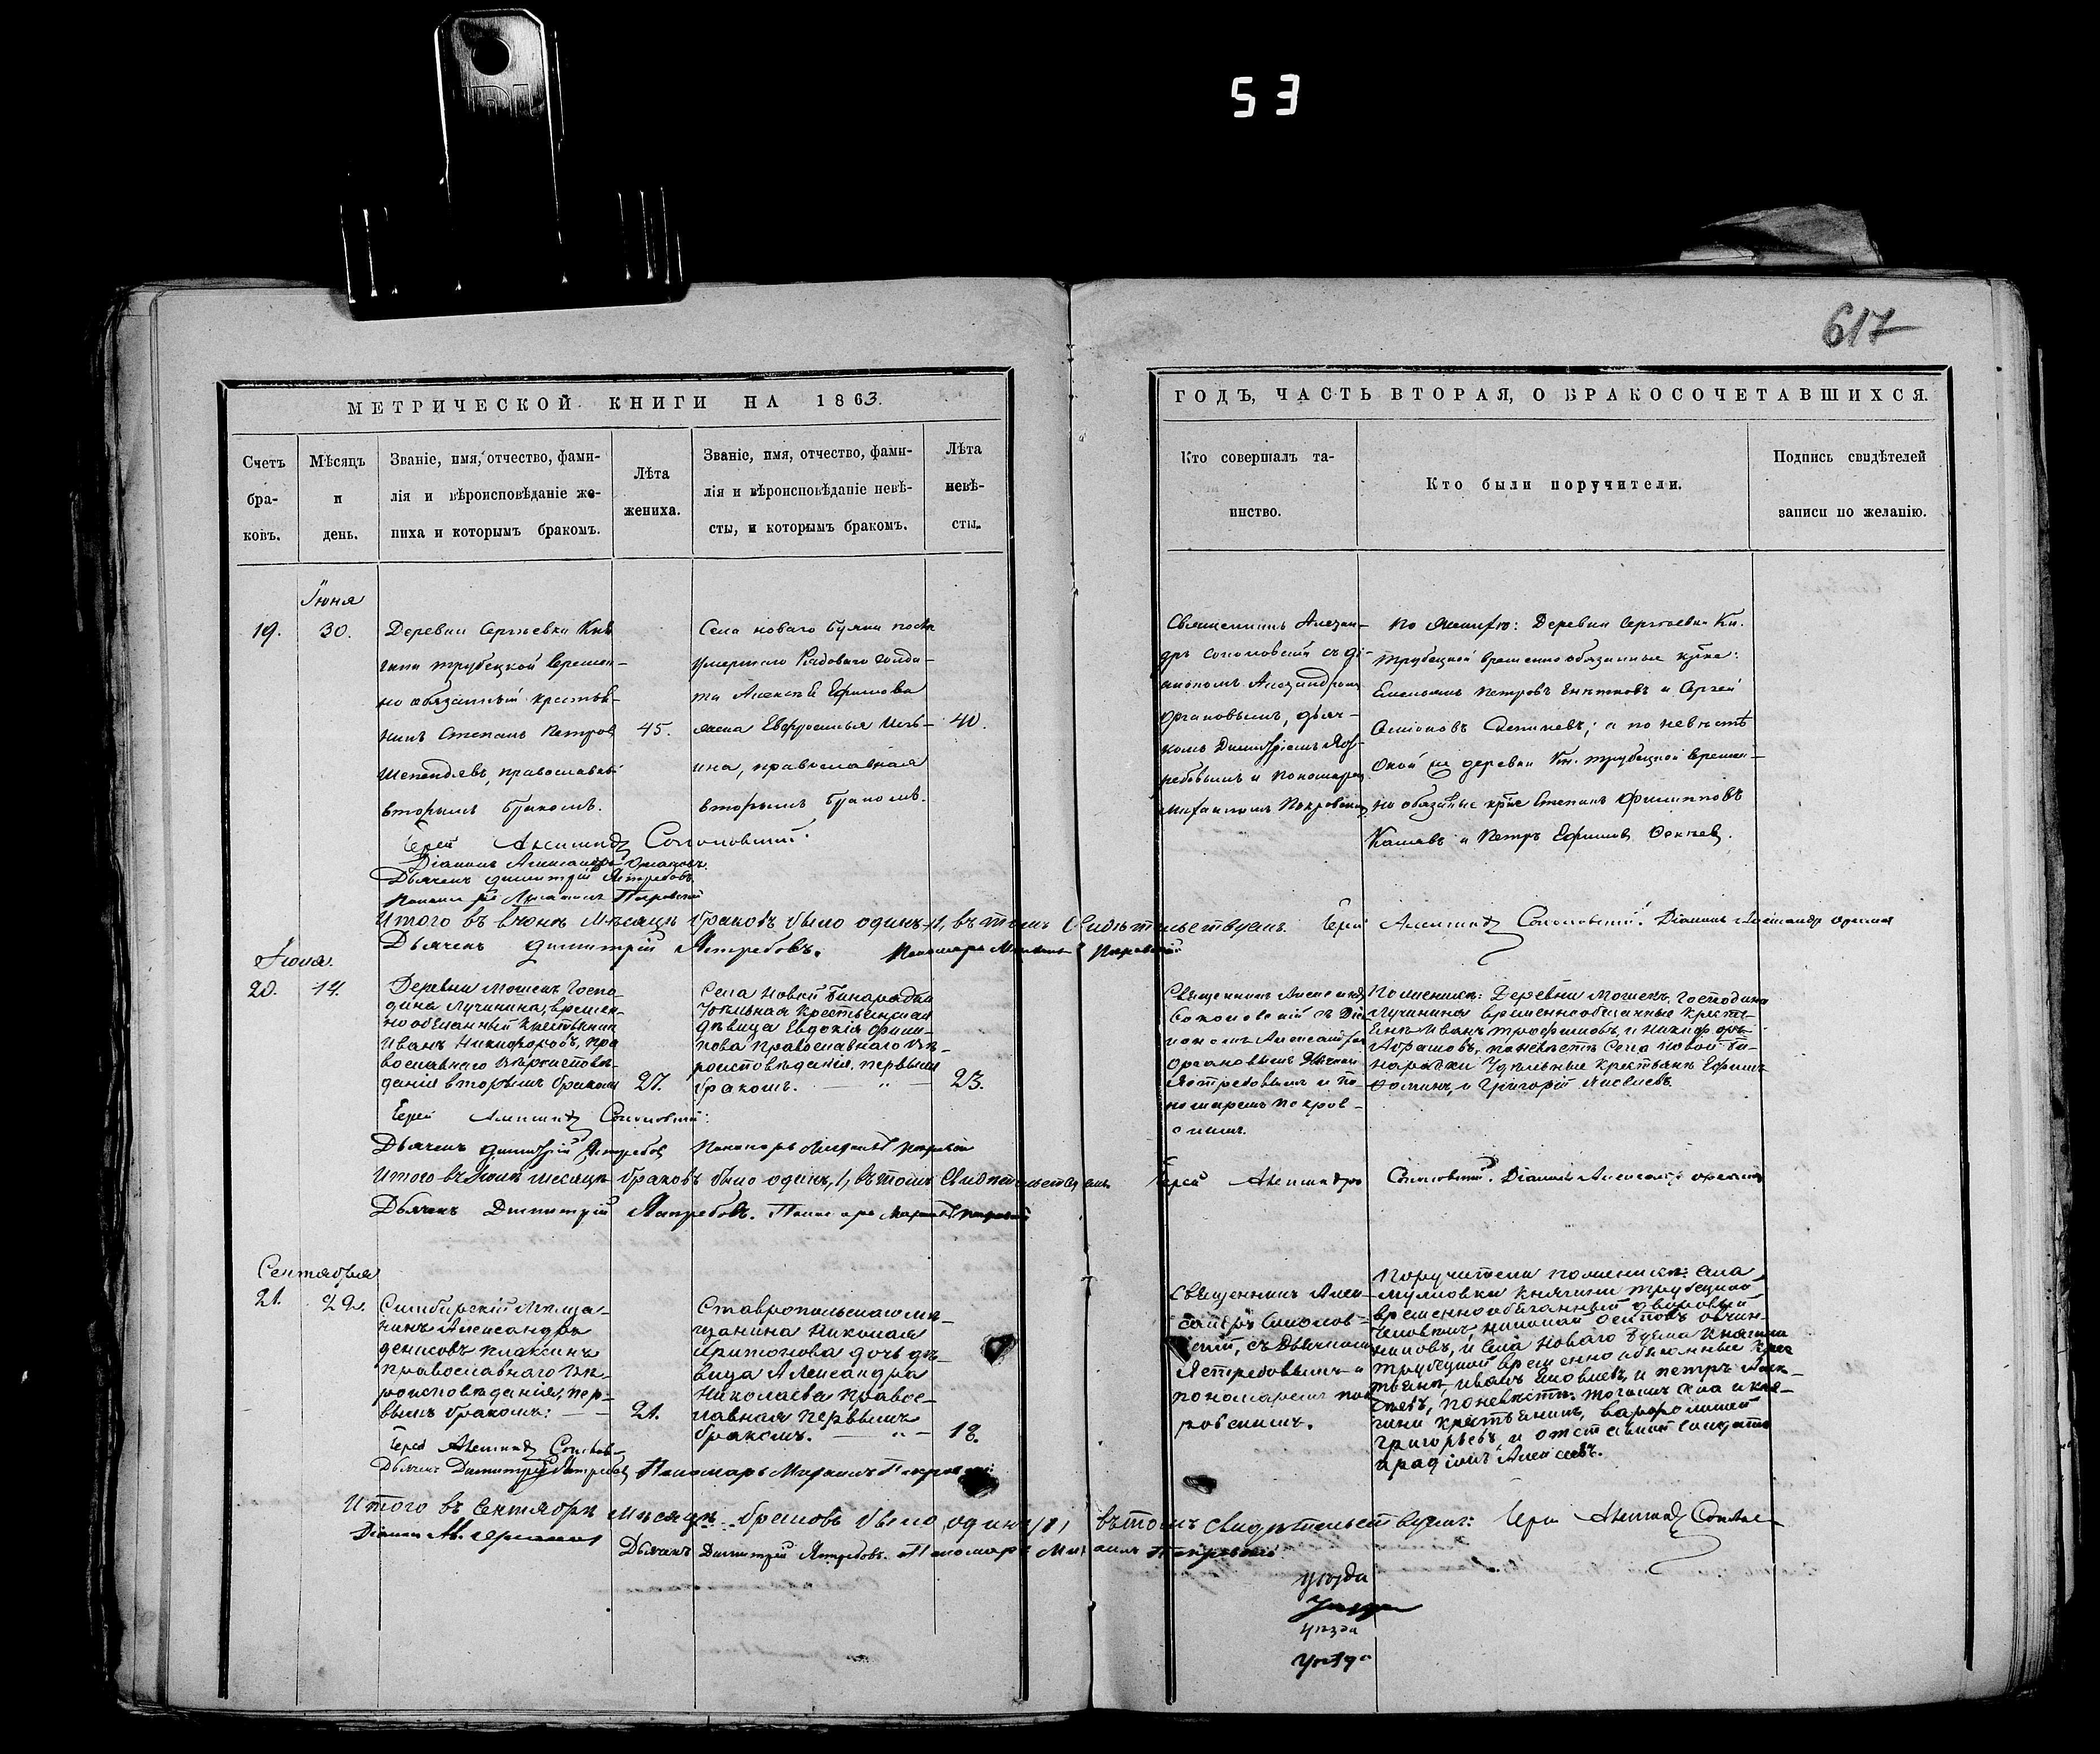 53
617
МЕТРИЧЕСКОЙ КНИГИ НА 1863.
ГОДЪ, ЧАСТЬ ВТОРАЯ, О БРАКОСОЧЕТАВШИХСЯ.
Счетъ бра-ковъ.
Мѣсяцъ и день.
Званіе, имя, отчество, фами-
лія и вѣроисповѣданіе же-
ниха и которымъ бракомъ.
Лѣта
жениха.
Званіе, имя, отчество, фами-
лія и вѣроисповѣданіе невѣ-
сты, и которымъ бракомъ.
Лѣта
невѣ-
сты.
Кто совершалъ та-
инство.
Кто были поручители.
Подпись свидѣтелей
записи по желанію.
Іюня
19. 30.
Деревни Сергѣевки Кня
гини Трубецкой времен-
но обязанный крестья
нинъ Степанъ Петров
православн
вторымъ бракомъ.
45.
Села новаго
умершаго Рядоваго солда-
та Алексѣя Ефимова
жена Евфросинья Иль-
ина, православная
вторымъ бракомъ.
40.
Священникъ Алексан-
дръ Соколовскій съ ді-
акономъ Александромъ
Органовымъ, дьяч-
комъ Димитріемъ Яст-
ребовымъ и пономарем
Михаиломъ Покровским
По женихѣ: Деревни Сергѣевки Кн.
Трубецкой временно обязанные
Емельянъ Петровъ и Сергей
и по невѣстѣ
деревни Кн. Трубецкой времен-
но обязаные Степанъ Филипповъ
и Петръ Ефимов
Іерей Александръ Соколовскій.
Діаконъ Александръ Органовъ.
Дьячекъ Димитрій Ястребовъ.
Пономарь Михаилъ Покровскій
Итого въ Іюнѣ мѣсяцѣ браковъ было одинъ, 1, въ томъ свидѣтельствуемъ. Іерей Александр Соколовскій. Діаконъ Александр Органов
Дьячекъ Димитрій Ястребовъ. Пономарь Михаилъ Покровскій
20. 14.
Деревни Госпо-
дина Лучинина, времен-
но обязанный крестьянин
Иванъ Никифоровъ, пра
вославнаго вѣроисповѣ-
данія вторымъ бракомъ
27.
Села Новой Бинарадки
Удѣльная крестьянская
дѣвица Евдокія Фили-
пова православнаго вѣ-
роисповѣданія, первымъ
бракомъ.
23.
Священникъ Александр
Соколовскій съ Діа
кономъ Александром
Органовымъ Дьячком
Ястребовымъ и по-
номаремъ Покров-
скимъ.
По женихѣ: Деревни Господина
Лучинина временнообязанные кресть-
яне Иванъ Трофимовъ, и Никифоръ
Абрамовъ, по невѣстѣ Села Новой Би-
нарадки Удѣльные крестьяне Ефимъ
Фоминъ, и Григорій
Іерей Александр Соколовскій:
Дьячекъ Димитрій Ястребов Пономарь Михаилъ Покровскій
Итого въ мѣсяцѣ браковъ было одинъ, 1, въ томъ свидѣтельствуемъ Іерей Александръ Соколовскій. Діаконъ Александр Органовъ
Дьячекъ Димитрій Ястребовъ. Пономарь Михаилъ Покровскій
Сентября
21. 22.
Симбирскій мѣща-
нинъ Александръ
Денисовъ Плаксинъ
православнаго вѣ-
роисповѣданія, пер-
вымъ бракомъ:
21.
Ставропольскаго мѣ-
щанина Николая
Харитонова дочь дѣ-
вица Александра
Николаева правос-
лавная первымъ
бракомъ.
18.
Священникъ Алек-
сандръ Соколов-
скій, съ Дьячкомъ
Ястребовымъ и
пономаремъ Пок
ровскимъ.
Поручители по женихѣ: Села
княгини Трубецкой
временнообязанный дворовый
Николай Осиповъ Овчин-
никовъ, и Села Новаго Княгини
Трубецкой временно обязанные крес
тьяне, Иванъ и Петръ
по невѣстѣ: тогожъ села и кня-
гини крестьянинъ, Варфоломей
Григорьевъ, и отставной солдатъ
Алексѣевъ.
Іерей Александр Соколов-
Дьячекъ Димитрій Ястребов Пономарь Михаилъ Покровскій
Итого въ Сентябрѣ мѣсяцѣ браковъ было одинъ, 1, въ томъ свидѣтельствуемъ: Іерей Александ Соколов
Дьячекъ Димитрій Ястребовъ. Пономарь Михаилъ Покровскій